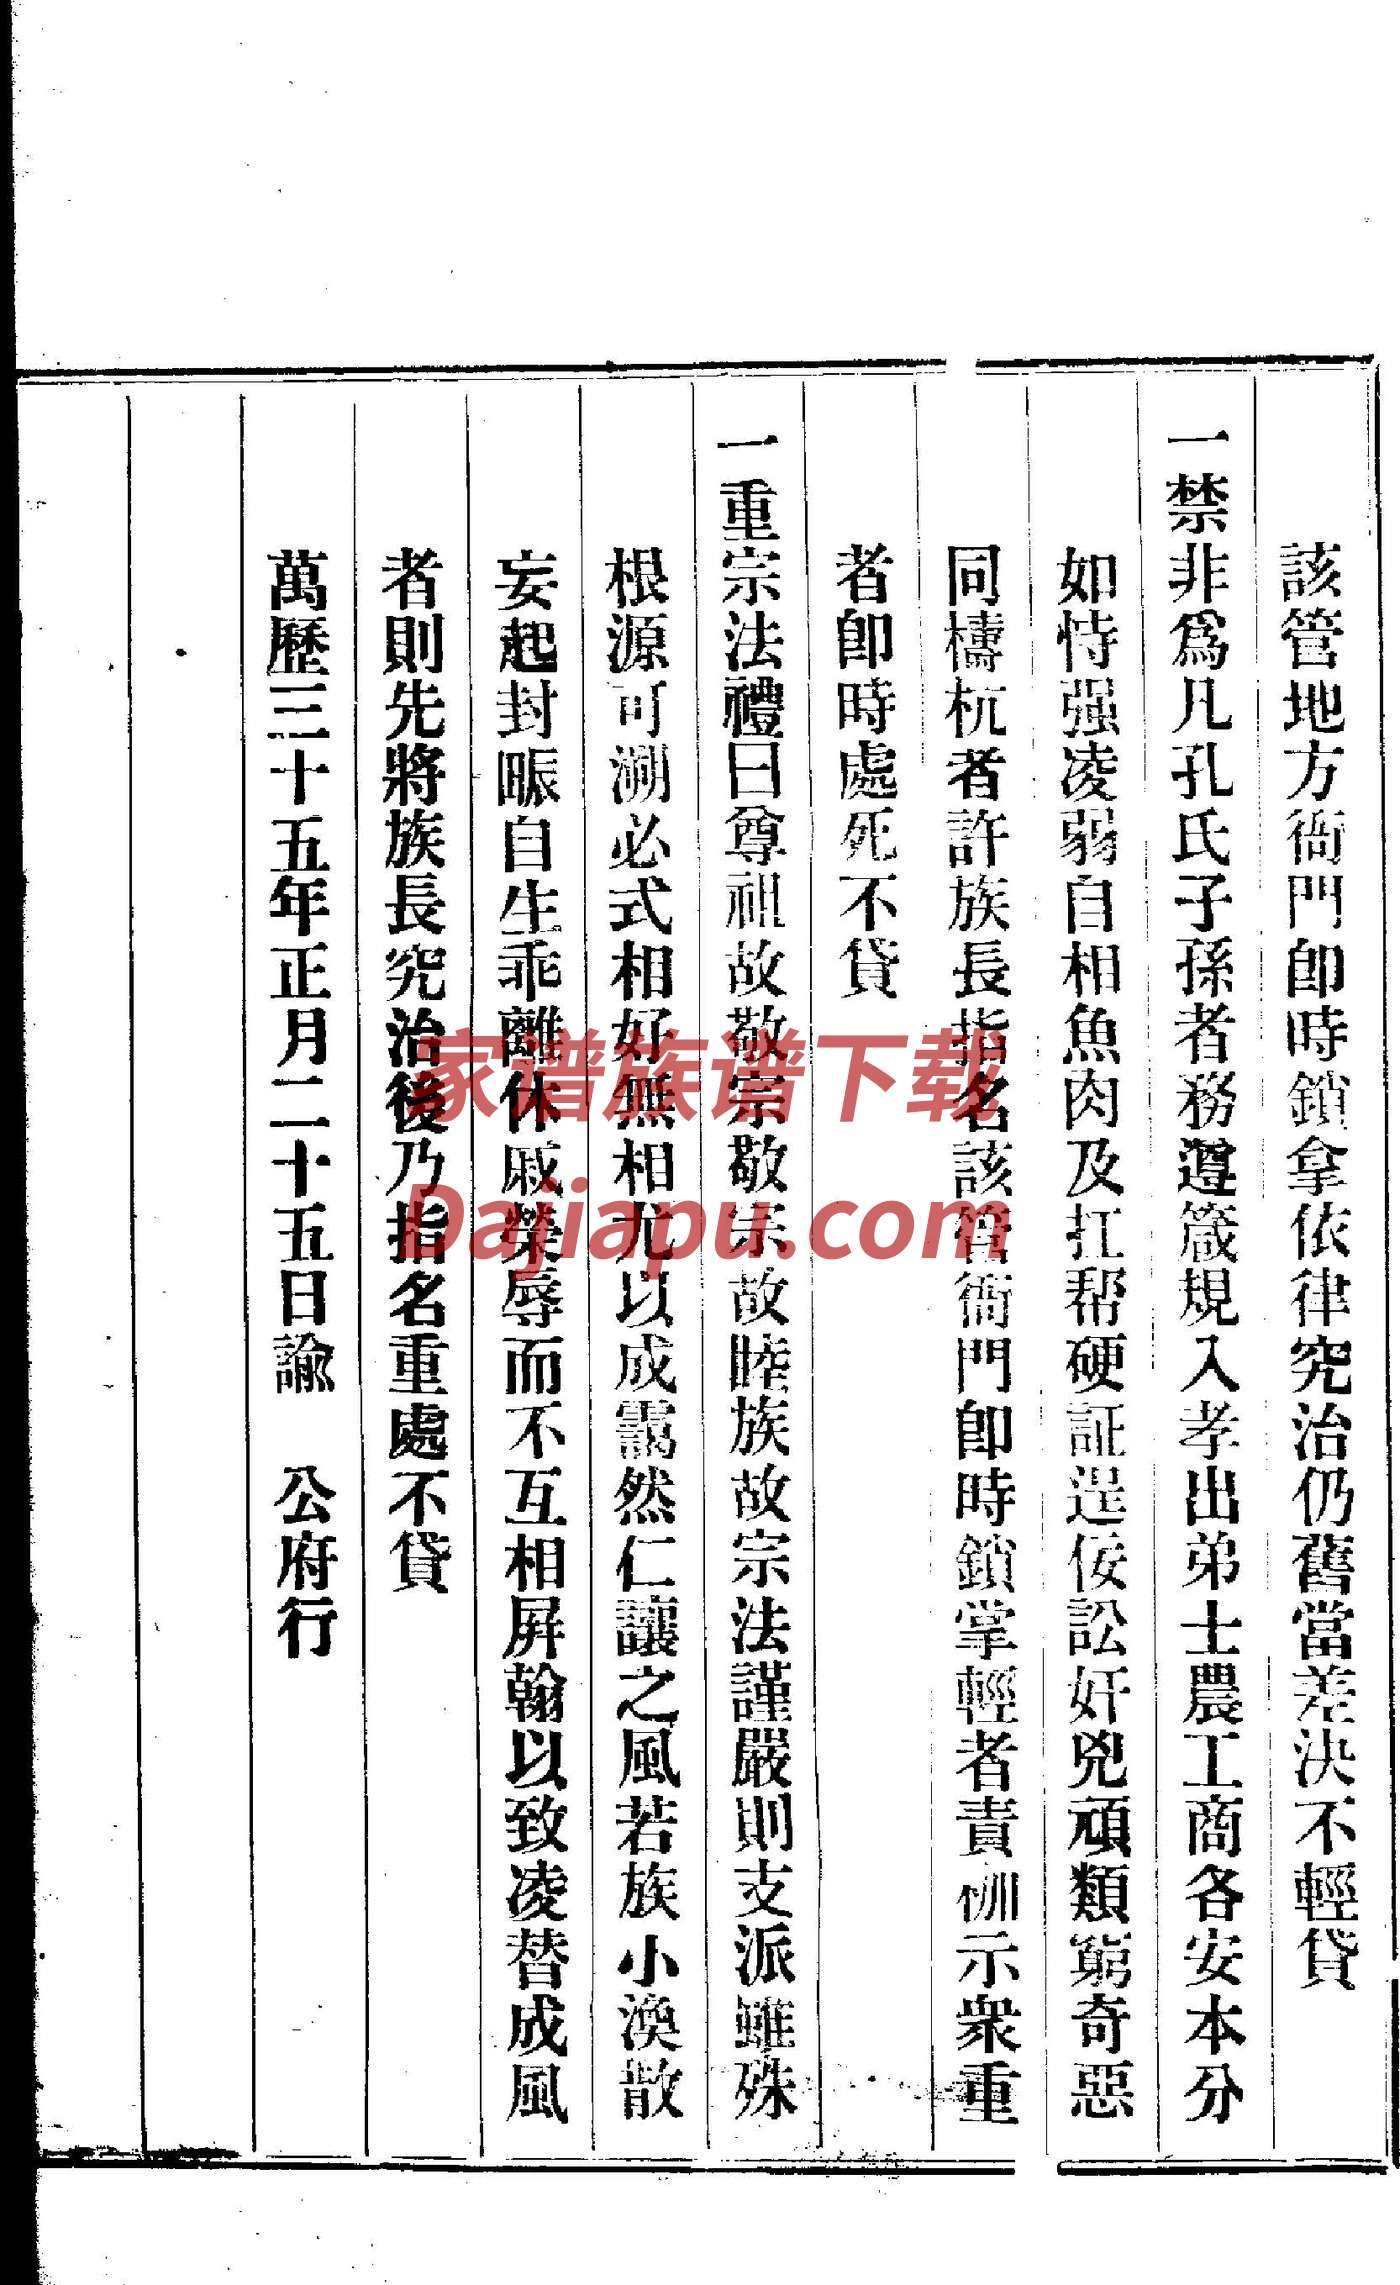 該管地方衙門卽時鎖拿依律究治仍舊當差決不輕貸
一禁非爲凡孔氏子孫者務遵箴規入孝出弟士農工商各安本分
如恃强凌弱自相魚肉及扛帮硬証逞佞訟奸兇頑類窮奇惡
同檮杌者許族長指名該管衙門卽時鎖掌輕者責枷示衆重
者卽時處死不貸
一重宗法禮曰尊祖故敬宗敬宗故睦族故宗法謹嚴則支派雖殊
根源可溯必式相好無相尤以成靄然仁讓之風若族小渙散
妄起封畛自生乖離休戚榮辱而不互相屛翰以致凌替成風
者則先將族長究治後乃指名重處不貸
萬歷三十五年正月二十五日諭 公府行
家谱族谱下载
Dajiapu.com